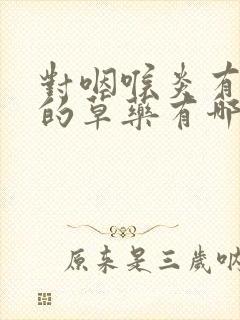 對咽喉炎有
的草藥有哪
原来是三歲吶